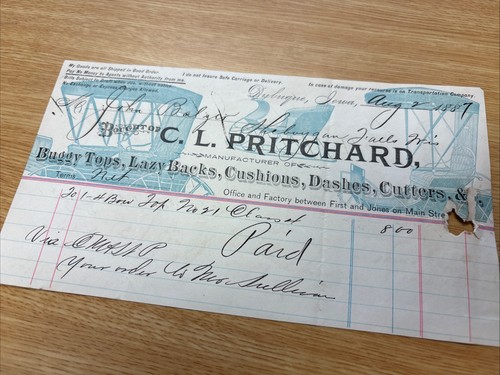 My Goods are all Shipped in Good Order
Pay No Money to Agents without Authority from me. I do not Insure Safe Carriage or Delivery. In case of damage your resource is on Transportation Company.
Bills Subject to Draft when due, without notice
No Exchange or Express Charges Allowed.
Dubuque, Iowa, Aug 2 1887
Mr. John Balzer Sheboygan Falls Wis
Bought of C. L. PRITCHARD,
MANUFACTURER OF
Buggy Tops, Lazy Backs, Cushions, Dashes, Cutters, &
Terms Net Office and Factory between First and Jones on Main Stre
To 1-4 Bow Top No 21 8 00
Paid
Via
Your order